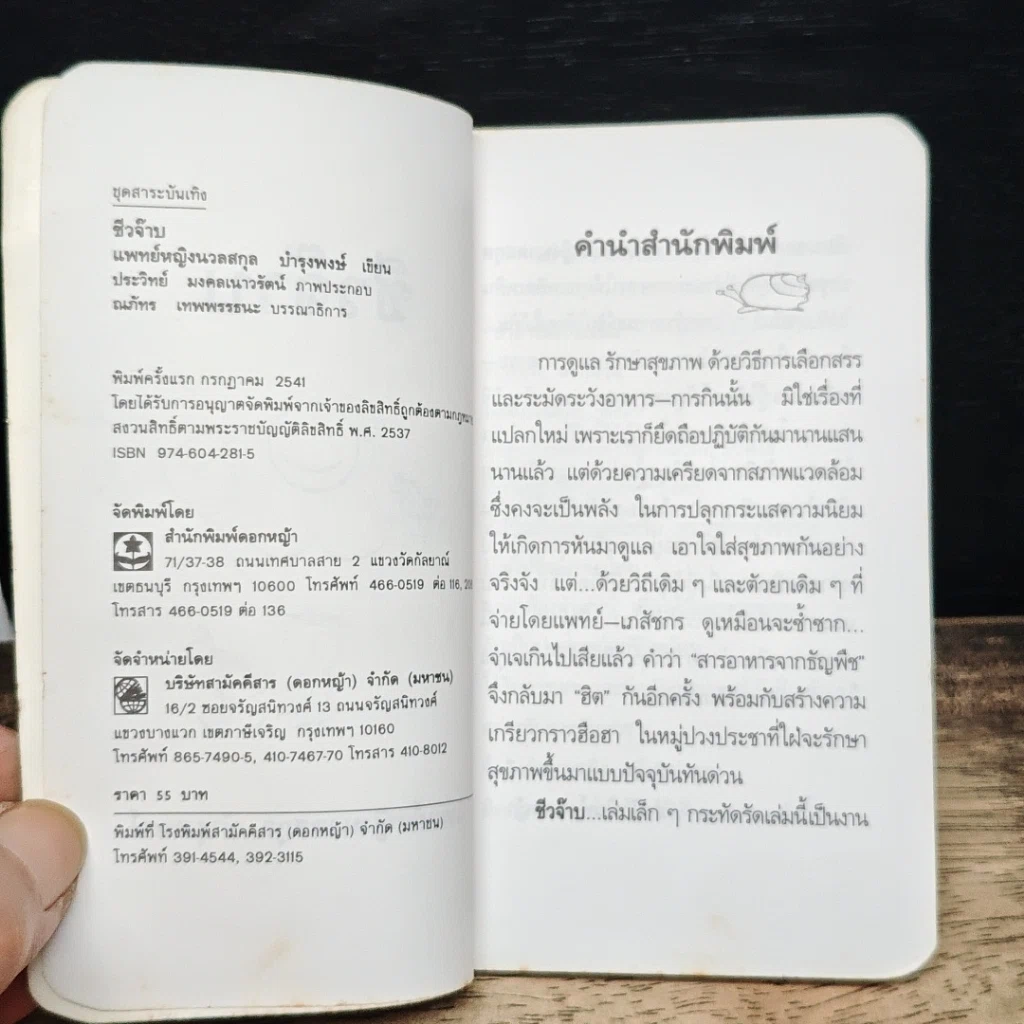 ชุดสาระบันเทิง
ชีวจ๊าบ
แพทย์หญิงนวลสกุล บำรุงพงษ์ เขียน
ประวิทย์ มงคลเนาวรัตน์ ภาพประกอบ
ณภัทร เทพพรรธนะ บรรณาธิการ
พิมพ์ครั้งแรก กรกฎาคม 2541
โดยได้รับการอนุญาตจัดพิมพ์จากเจ้าของลิขสิทธิ์ถูกต้องตามกฎหมาย
สงวนสิทธิ์ตามพระราชบัญญัติลิขสิทธิ์ พ.ศ. 2537
ISBN 974-604-281-5
จัดพิมพ์โดย
สำนักพิมพ์ดอกหญ้า
71/37-38 ถนนเทศบาลสาย 2 แขวงวัดกัลยาณ์
เขตธนบุรี กรุงเทพฯ 10600 โทรศัพท์ 466-0519 ต่อ 116,
โทรสาร 466-0519 ต่อ 136
จัดจำหน่ายโดย
บริษัทสามัคคีสาร (ดอกหญ้า) จำกัด (มหาชน)
16/2 ซอยจรัญสนิทวงศ์ 13 ถนนจรัญสนิทวงศ์
แขวงบางแวก เขตภาษีเจริญ กรุงเทพฯ 10160
โทรศัพท์ 865-7490-5, 410-7467-70 โทรสาร 410-8012
ราคา 55 บาท
พิมพ์ที่ โรงพิมพ์สามัคคีสาร (ดอกหญ้า) จำกัด (มหาชน)
โทรศัพท์ 391-4544, 392-3115
คำนำสำนักพิมพ์
การดูแล รักษาสุขภาพ ด้วยวิธีการเลือกสรร
และระมัดระวังอาหาร—การกินนั้น มิใช่เรื่องที่
แปลกใหม่ เพราะเราก็ยึดถือปฏิบัติกันมานานแสน
นานแล้ว แต่ด้วยความเครียดจากสภาพแวดล้อม
ซึ่งคงจะเป็นพลัง ในการปลุกกระแสความนิยม
ให้เกิดการหันมาดูแล เอาใจใส่สุขภาพกันอย่าง
จริงจัง แต่...ด้วยวิถีเดิม ๆ และตัวยาเดิม ๆ ที่
จ่ายโดยแพทย์—เภสัชกร ดูเหมือนจะซ้ำซาก...
จำเจเกินไปเสียแล้ว คำว่า "สารอาหารจากธัญพืช"
จึงกลับมา "ฮิต" กันอีกครั้ง พร้อมกับสร้างความ
เกรียวกราวฮือฮา ในหมู่ปวงประชาที่ใฝ่จะรักษา
สุขภาพขึ้นมาแบบปัจจุบันทันด่วน
ชีวจ๊าบ...เล่มเล็ก ๆ กระทัดรัดเล่มนี้เป็นงาน